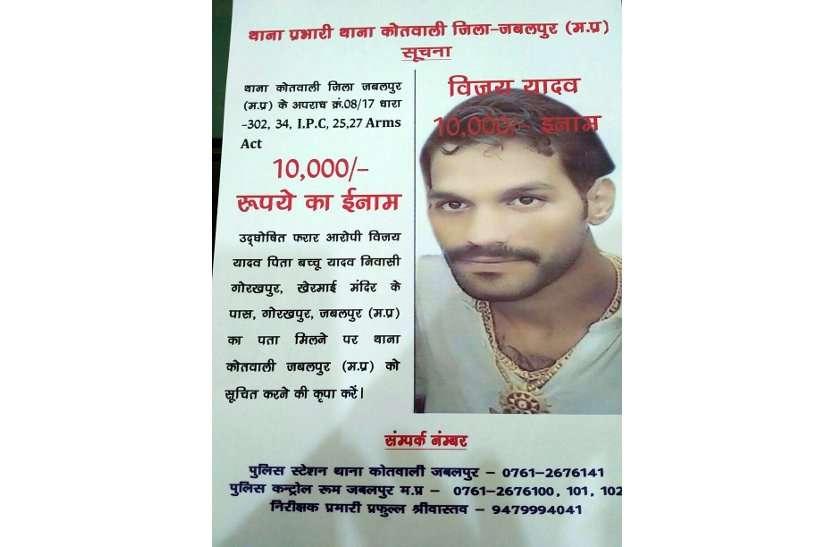 थाना प्रभारी थाना कोतवाली जिला-जबलपुर (म.प्र)
सूचना
थाना कोतवाली जिला जबलपुर
(म.प्र) के अपराध क्रं.08/17 धारा
-302, 34, I.P.C, 25,27 Arms
Act
10,000/-
रूपये का ईनाम
उद्घोषित फरार आरोपी विजय
यादव पिता बच्चू यादव निवासी
गोरखपुर, खेरमाई मंदिर के
पास, गोरखपुर, जबलपुर (म.प्र)
का पता मिलने पर थाना
कोतवाली जबलपुर (म.प्र) को
सूचित करने की कृपा करें।
विजय यादव
10,000/- इनाम
संम्पर्क नंम्बर
पुलिस स्टेशन थाना कोतवाली जबलपुर - 0761-2676141
पुलिस कन्ट्रोल रूम जबलपुर म.प्र - 0761-2676100, 101, 102
निरीक्षक प्रभारी प्रफुल्ल श्रीवास्तव - 9479994041